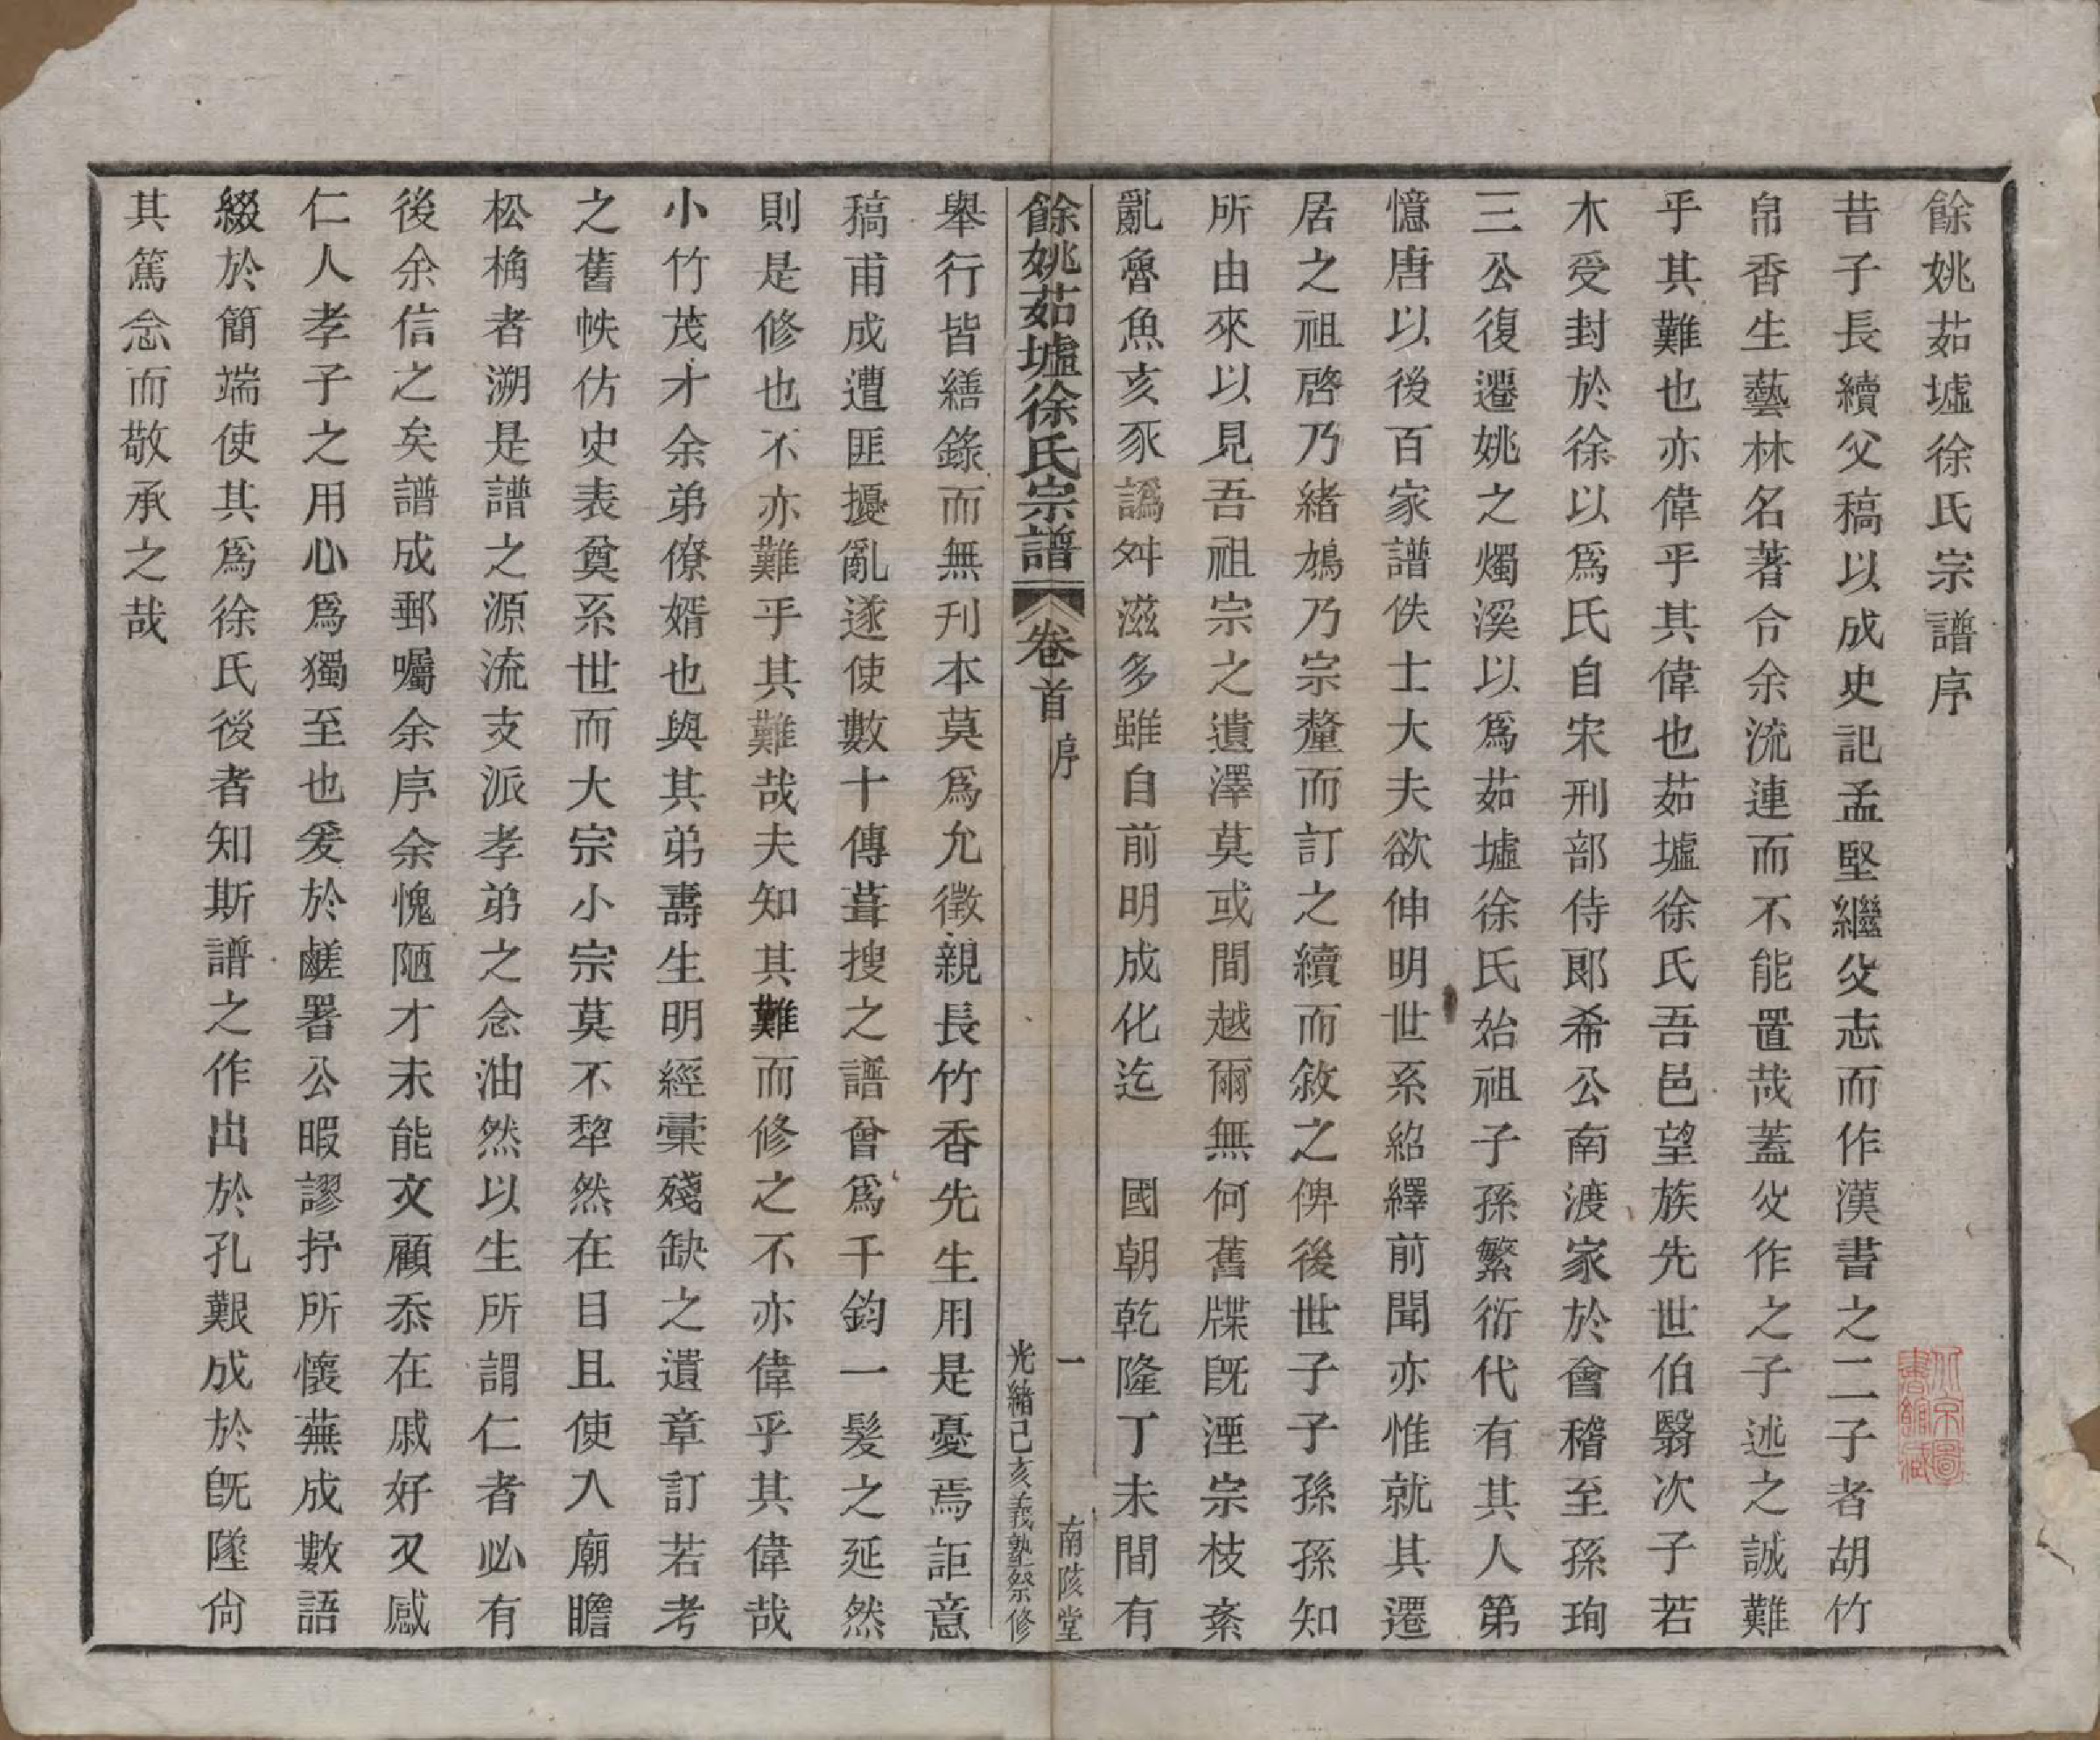 餘姚茹墟徐氏宗譜序
昔子長續父稿以成史記孟堅繼父志而作漢書之二子者胡竹
帛香生藝林名著令余流連而不能置哉蓋父作之子述之誠難
乎其難也亦偉乎其偉也茹墟徐氏吾邑望族先世伯翳次子若
木受封於徐以爲氏自宋刑部侍郎希公南渡家於會稽至孫珣
三公復遷姚之燭溪以爲茹墟徐氏始祖子孫繁衍代有其人第
憶唐以後百家譜佚士大夫欲伸明世系紹繹前聞亦惟就其遷
居之祖啓乃緒鳩乃宗釐而訂之續而敘之俾後世子子孫孫知
所由來以見吾祖宗之遺澤莫或間越爾無何舊牒旣湮宗枝紊
亂魯魚亥豕譌舛滋多雖自前明成化迄　國朝乾隆丁未間有
餘姚茹墟徐氏宗譜　卷首　序　一　南陔堂
光緒己亥義塾祭修
舉行皆繕錄而無刊本莫爲允徵親長竹香先生用是憂焉詎意
稿甫成遭匪擾亂遂使數十傳葺搜之譜曾爲千鈞一髮之延然
則是修也不亦難乎其難哉夫知其難而修之不亦偉乎其偉哉
小竹茂才余弟僚婿也與其弟壽生明經彙殘缺之遺章訂若考
之舊帙仿史表奠系世而大宗小宗莫不犂然在目且使入廟瞻
松桷者溯是譜之源流支派孝弟之念油然以生所謂仁者必有
後余信之矣譜成郵囑余序余愧陋才未能文顧忝在戚好又感
仁人孝子之用心爲獨至也爰於鹺署公暇謬抒所懷蕪成數語
綴於簡端使其爲徐氏後者知斯譜之作出於孔艱成於旣墜尙
其篤念而敬承之哉